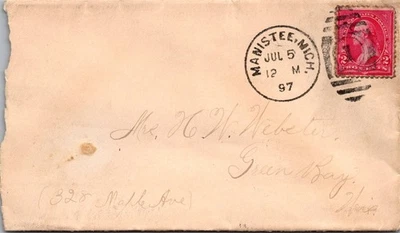 MANISTEE, MICH.
JUL 5
12 M.
97
2 2
TWO CENTS
H. W. Webster,
Green Bay,
Wis.
(328 Maple Ave)